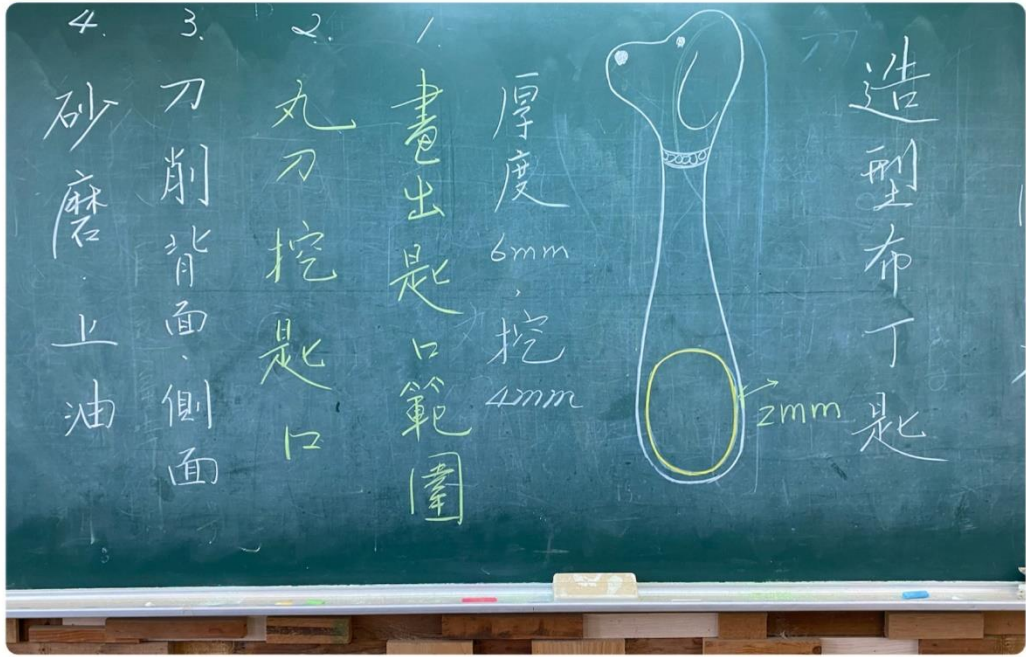 造型布丁匙
2mm
厚度6mm、挖4mm
1. 畫出匙口範圍
2. 丸刀挖匙口
3. 刀削背面、側面
4. 砂磨.上油